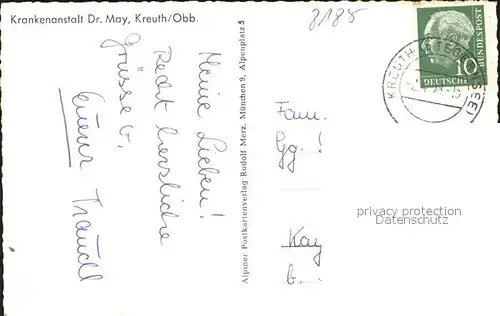 Krankenanstalt Dr. May, Kreuth/Obb.
8188
BUNDESPOST
10
DEUTSCHE
KREUTH
Meine Lieben!
Recht herzliche
Grüsse v.
Eurer Traudl
Alpiner Postkartenverlag Rudolf Merz, München 9, Alpenplatz 5
Fam.
Gg. !
privacy protection
Datenschutz
Kay
b.